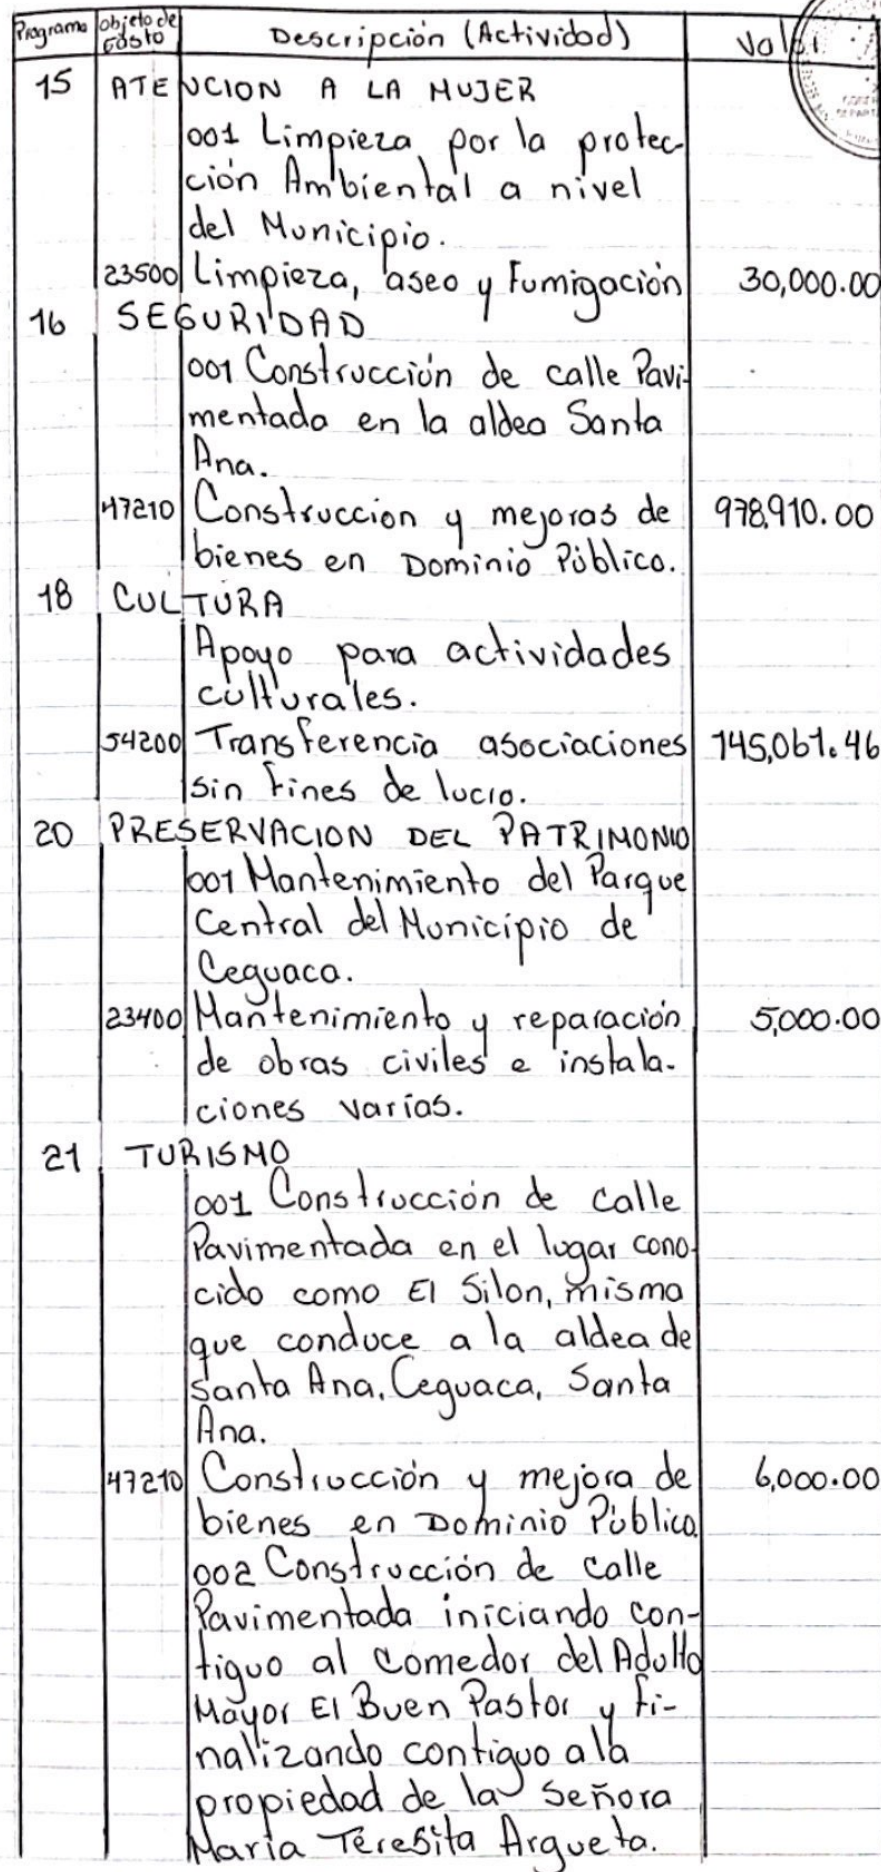 Programa objeto de Gasto Descripción (Actividad) Valor
15 ATENCION A LA MUJER
001 Limpieza por la protec-
ción Ambiental a nivel
del Municipio.
23500 Limpieza, aseo y Fumigación 30,000.00
16 SEGURIDAD
001 Construcción de calle Pavi-
mentada en la aldea Santa
Ana.
47210 Construccion y mejoras de 978,910.00
bienes en Dominio Público.
18 CULTURA
Apoyo para actividades
culturales.
54200 Transferencia asociaciones 145,061.46
sin fines de lucro.
20 PRESERVACION DEL PATRIMONIO
001 Mantenimiento del Parque
Central del Municipio de
Ceguaca.
23400 Mantenimiento y reparación 5,000.00
de obras civiles e instala-
ciones varias.
21 TURISMO
001 Construcción de calle
Pavimentada en el lugar cono-
cido como El Silon, misma
que conduce a la aldea de
Santa Ana, Ceguaca, Santa
Ana.
47210 Construcción y mejora de 6,000.00
bienes en Dominio Público
002 Construcción de calle
Pavimentada iniciando con-
tiguo al Comedor del Adulto
Mayor El Buen Pastor y fi-
nalizando contiguo a la
propiedad de la Señora
Maria Teresita Argueta.